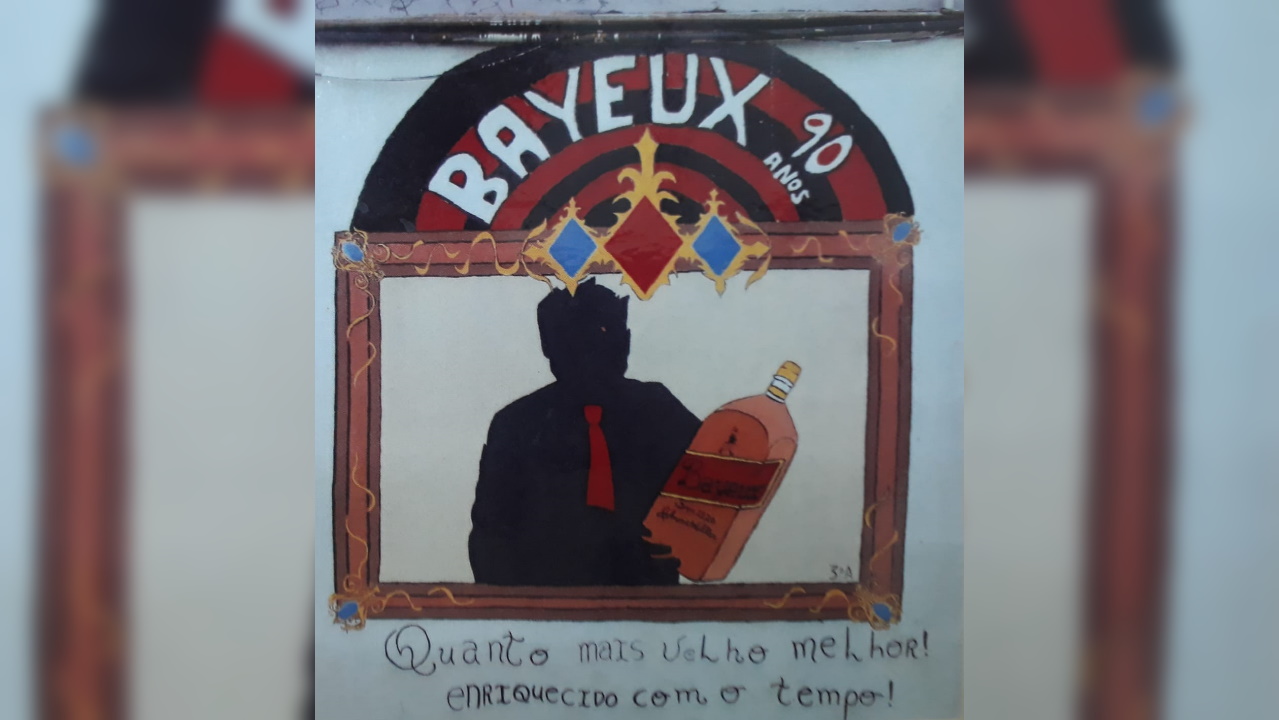 BAYEUX
90
ANOS
3ºA
Quanto mais velho melhor!
enriquecido com o tempo!